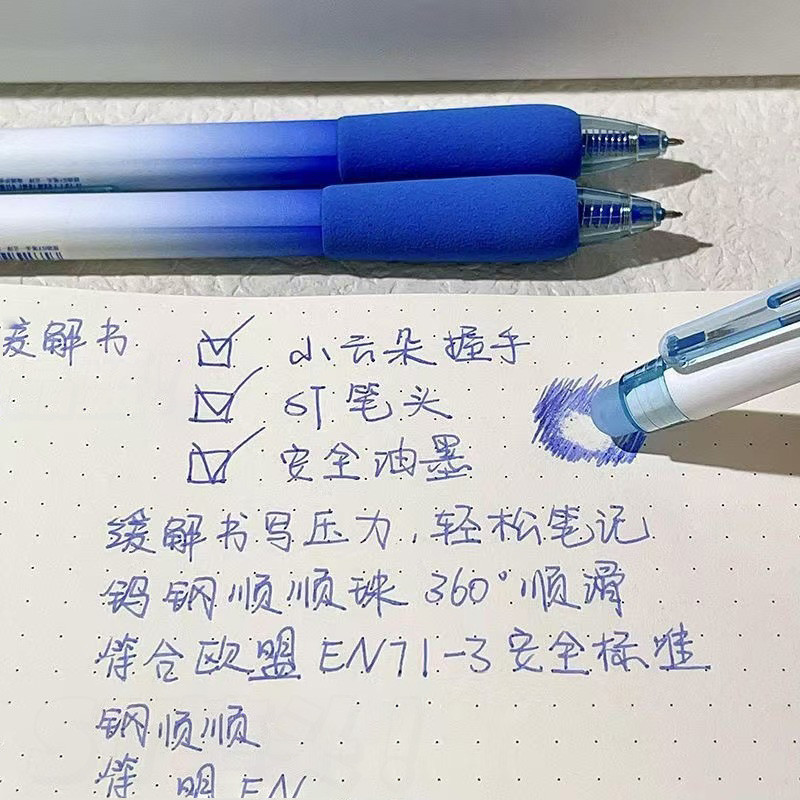 缓解书 ☑ 小云朵握手
☑ ST笔头
☑ 安全油墨
缓解书写压力，轻松笔记
钨钢顺顺珠 360°顺滑
符合欧盟EN71-3安全标准
钢顺顺
符 盟 EN